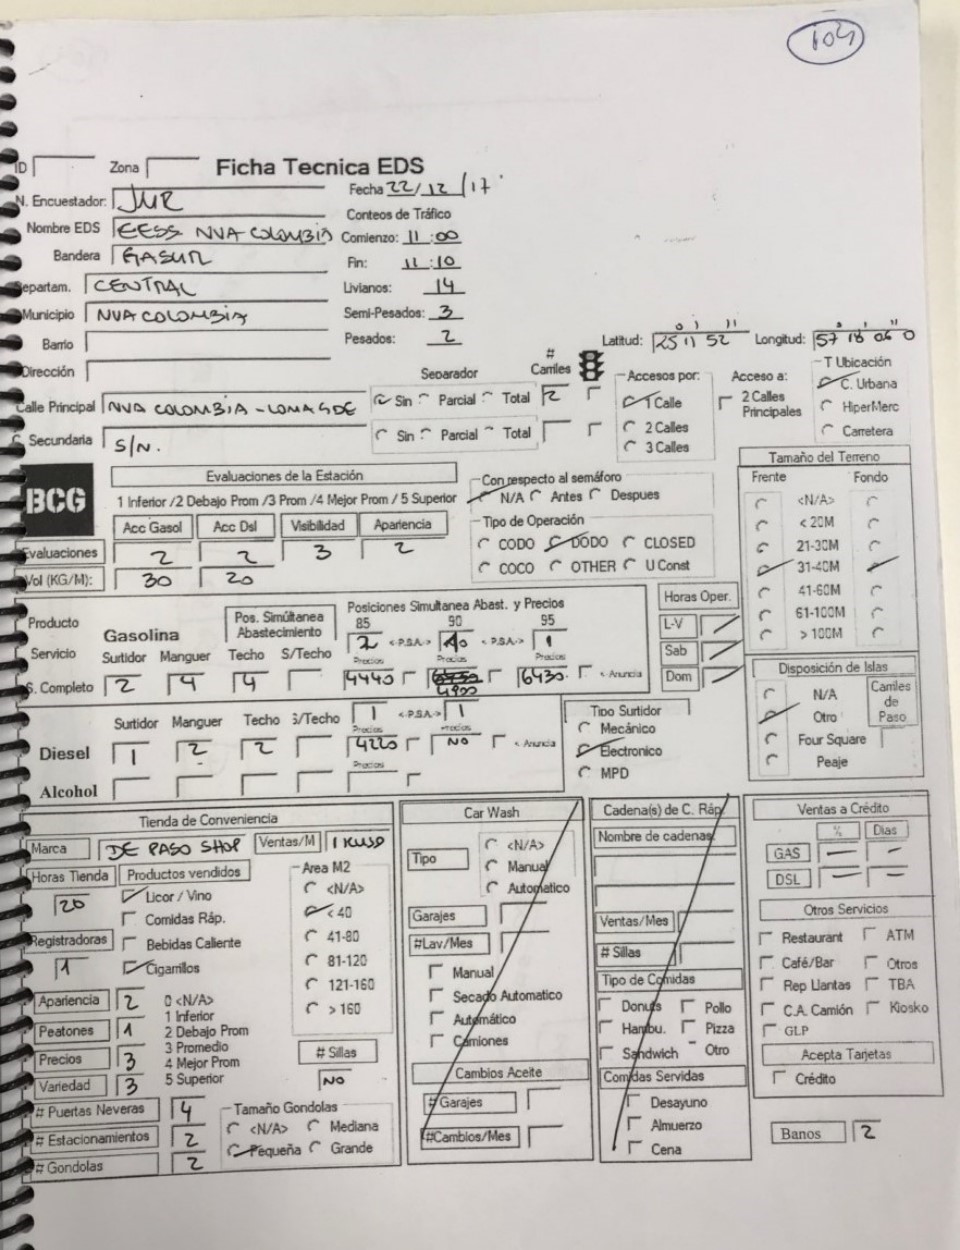 104
ID Zona Ficha Tecnica EDS
N. Encuestador: JMR Fecha 22/12/17
Conteos de Tráfico
Nombre EDS EESS NVA COLOMBIA Comienzo: 11:00
Bandera GASUR Fin: 11:10
Departam. CENTRAL Livianos: 14
Municipio NVA COLOMBIA Semi-Pesados: 3
Barrio Pesados: 2 Latitud: 25 11 52 Longitud: 57 18 06 0
Dirección Separador # Carriles Accesos por: Acceso a: T Ubicación
Calle Principal NVA COLOMBIA - LOMA GDE Sin Parcial Total 2 1 Calle 2 Calles Principales C. Urbana
2 Calles HiperMerc
C. Secundaria S/N. Sin Parcial Total 3 Calles Carretera
BCG Evaluaciones de la Estación Con respecto al semáforo Tamaño del Terreno
1 Inferior /2 Debajo Prom /3 Prom /4 Mejor Prom / 5 Superior N/A Antes Despues Frente Fondo
Acc Gasol Acc Dsl Visibilidad Apariencia Tipo de Operación <N/A>
Evaluaciones 2 2 3 2 CODO DODO CLOSED < 20M
Vol (KG/M): 30 20 COCO OTHER U Const 21-30M
31-40M
41-60M
61-100M
> 100M
Producto Pos. Simúltanea Abastecimiento Posiciones Simultanea Abast. y Precios Horas Oper.
Gasolina 85 90 95 L-V
Servicio 2 <-P.S.A-> <-P.S.A-> 1 Sab
Surtidor Manguer Techo S/Techo Precios Precios Precios Dom
S. Completo 2 4 4 4440 4900 6430 <-Anuncia
Disposición de Islas
N/A Carriles de Paso
Otro
Four Square
Peaje
Surtidor Manguer Techo S/Techo 1 <-P.S.A-> 1 Tipo Surtidor
Precios Precios Mecánico
Diesel 1 2 2 4220 NO <-Anuncia Electronico
Precios MPD
Alcohol
Tienda de Conveniencia
Marca DE PASO SHOP Ventas/M 1 KUSD
Horas Tienda Productos vendidos Area M2
20 Licor / Vino <N/A>
Comidas Ráp. < 40
Registradoras Bebidas Caliente 41-80
1 Cigarrillos 81-120
Apariencia 2 0 <N/A> 121-160
1 Inferior > 160
Peatones 1 2 Debajo Prom
3 Promedio # Sillas
Precios 3 4 Mejor Prom
Variedad 3 5 Superior NO
# Puertas Neveras 4 Tamaño Gondolas
# Estacionamientos 2 <N/A> Mediana
# Gondolas 2 Pequeña Grande
Car Wash
Tipo <N/A>
Manual
Automatico
Garajes
#Lav/Mes
Manual
Secado Automatico
Automático
Camiones
Cambios Aceite
# Garajes
#Cambios/Mes
Cadena(s) de C. Ráp
Nombre de cadenas
Ventas/Mes
# Sillas
Tipo de Comidas
Donuts Pollo
Hambu. Pizza
Sandwich Otro
Comidas Servidas
Desayuno
Almuerzo
Cena
Ventas a Crédito
% Dias
GAS — —
DSL — —
Otros Servicios
Restaurant ATM
Café/Bar Otros
Rep Llantas TBA
C.A. Camión Kiosko
GLP
Acepta Tarjetas
Crédito
Banos 2